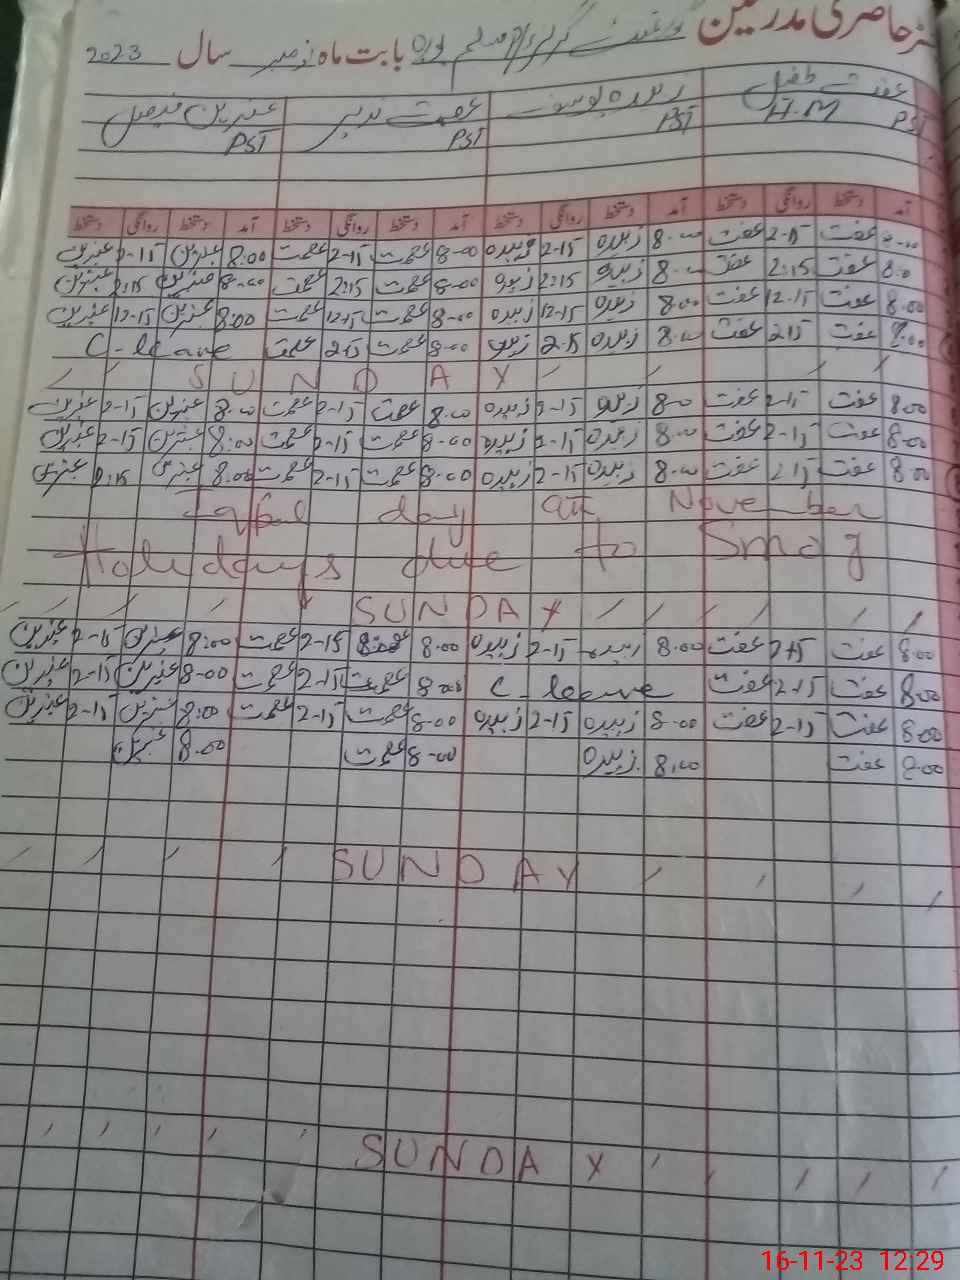 رجسٹر حاضری مدرسین گورنمنٹ گرلز پرائمری مسلم پورہ بابت ماہ نومبر سال 2023
عفت طفیل زبیدہ یوسف عصمت نذیر عنبرین فیصل
PST H.M PST PST PST
آمد دستخط روانگی دستخط آمد دستخط روانگی دستخط آمد دستخط روانگی دستخط آمد دستخط روانگی دستخط
8.00 عفت 2-15 عفت 8.00 زبیدہ 2-15 زبیدہ 8-00 عصمت 2-15 عصمت 8.00 عنبرین 2-15 عنبرین
8.0 عفت 2:15 عفت 8.00 زبیدہ 2:15 زبیدہ 8-00 عصمت 2:15 عصمت 8-00 عنبرین 2:15 عنبرین
8.00 عفت 12-15 عفت 8.00 زبیدہ 12-15 زبیدہ 8-00 عصمت 12-15 عصمت 8.00 عنبرین 12-15 عنبرین
8.00 عفت 2-15 عفت 8.00 زبیدہ 2-15 زبیدہ 8-00 عصمت 2-15 عصمت C-leave
SUNDAY
8.00 عفت 2-15 عفت 8-0 زبیدہ 2-15 زبیدہ 8.00 عصمت 2-15 عصمت 8.00 عنبرین 2-15 عنبرین
8-00 عفت 2-15 عفت 8.00 زبیدہ 2-15 زبیدہ 8-00 عصمت 2-15 عصمت 8:00 عنبرین 2-15 عنبرین
8.00 عفت 2-15 عفت 8.00 زبیدہ 2-15 زبیدہ 8-00 عصمت 2-15 عصمت 8.00 عنبرین 2:15 عنبرین
Iqbal day 9th November
Holidays due to Smog
SUNDAY
8.00 عفت 2-15 عفت 8.00 زبیدہ 2-15 زبیدہ 8.00 2-15 عصمت 8:00 عنبرین 2-15 عنبرین
8.00 عفت 2-15 عفت C-leave 8.00 عصمت 2-15 عصمت 8-00 عنبرین 2-15 عنبرین
8.00 عفت 2-15 عفت 8-00 زبیدہ 2-15 زبیدہ 8-00 عصمت 2-15 عصمت 8:00 عنبرین 2-15 عنبرین
8.00 عفت 8.00 زبیدہ 8-00 عصمت 8.00 عنبرین
SUNDAY
SUNDAY
16-11-23 12:29